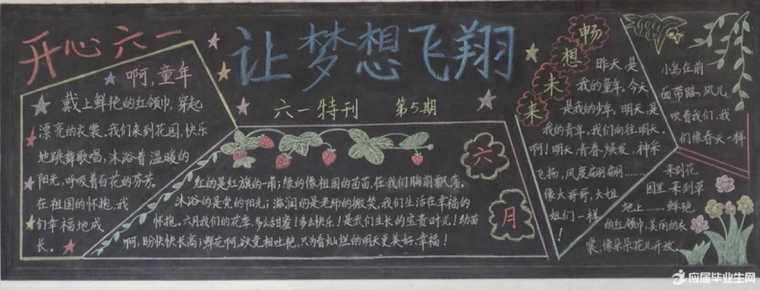 开心六一
让梦想飞翔
六一特刊 第5期
啊,童年
戴上鲜艳的红领巾,穿起
漂亮的衣裳,我们来到花园,快乐
地跳舞歌唱,沐浴着温暖的
阳光,呼吸着百花的芬芳,
在祖国的怀抱,我
们幸福地成
长。
六
月
红的是红旗的一角;绿的像祖国的苗苗,在我们胸前飘荡,
沐浴的是党的阳光;滋润的是老师的微笑,我们生活在幸福的
怀抱。六月我们的花季,多么甜蜜!多么快乐!是我们生长的宝贵时光!幼苗
啊,盼快快长高;鲜花啊,欲竞相吐艳,只为着灿烂的明天更美好、幸福!
畅
想
未
来
昨天,是
我的童年,今天
是我的少年,明天,是
我的青年,我们向往明天,
啊!明天,青春焕发,神采
飞扬,风度翩翩……
像大哥哥,大姐
姐们一样
!
小鸟在前
面带路,风儿
吹着我们,我
们像春天一样
,来到花
园里,来到草
地上……鲜艳
的红领巾,美丽的衣
裳,像朵朵花儿开放。
应届毕业生网